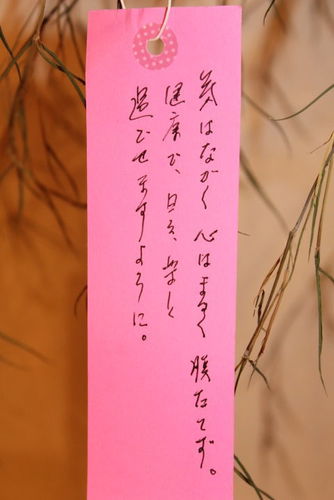 気はながく 心はまるく 腹たてず。
健康で、日々、楽しく
過ごせますように。